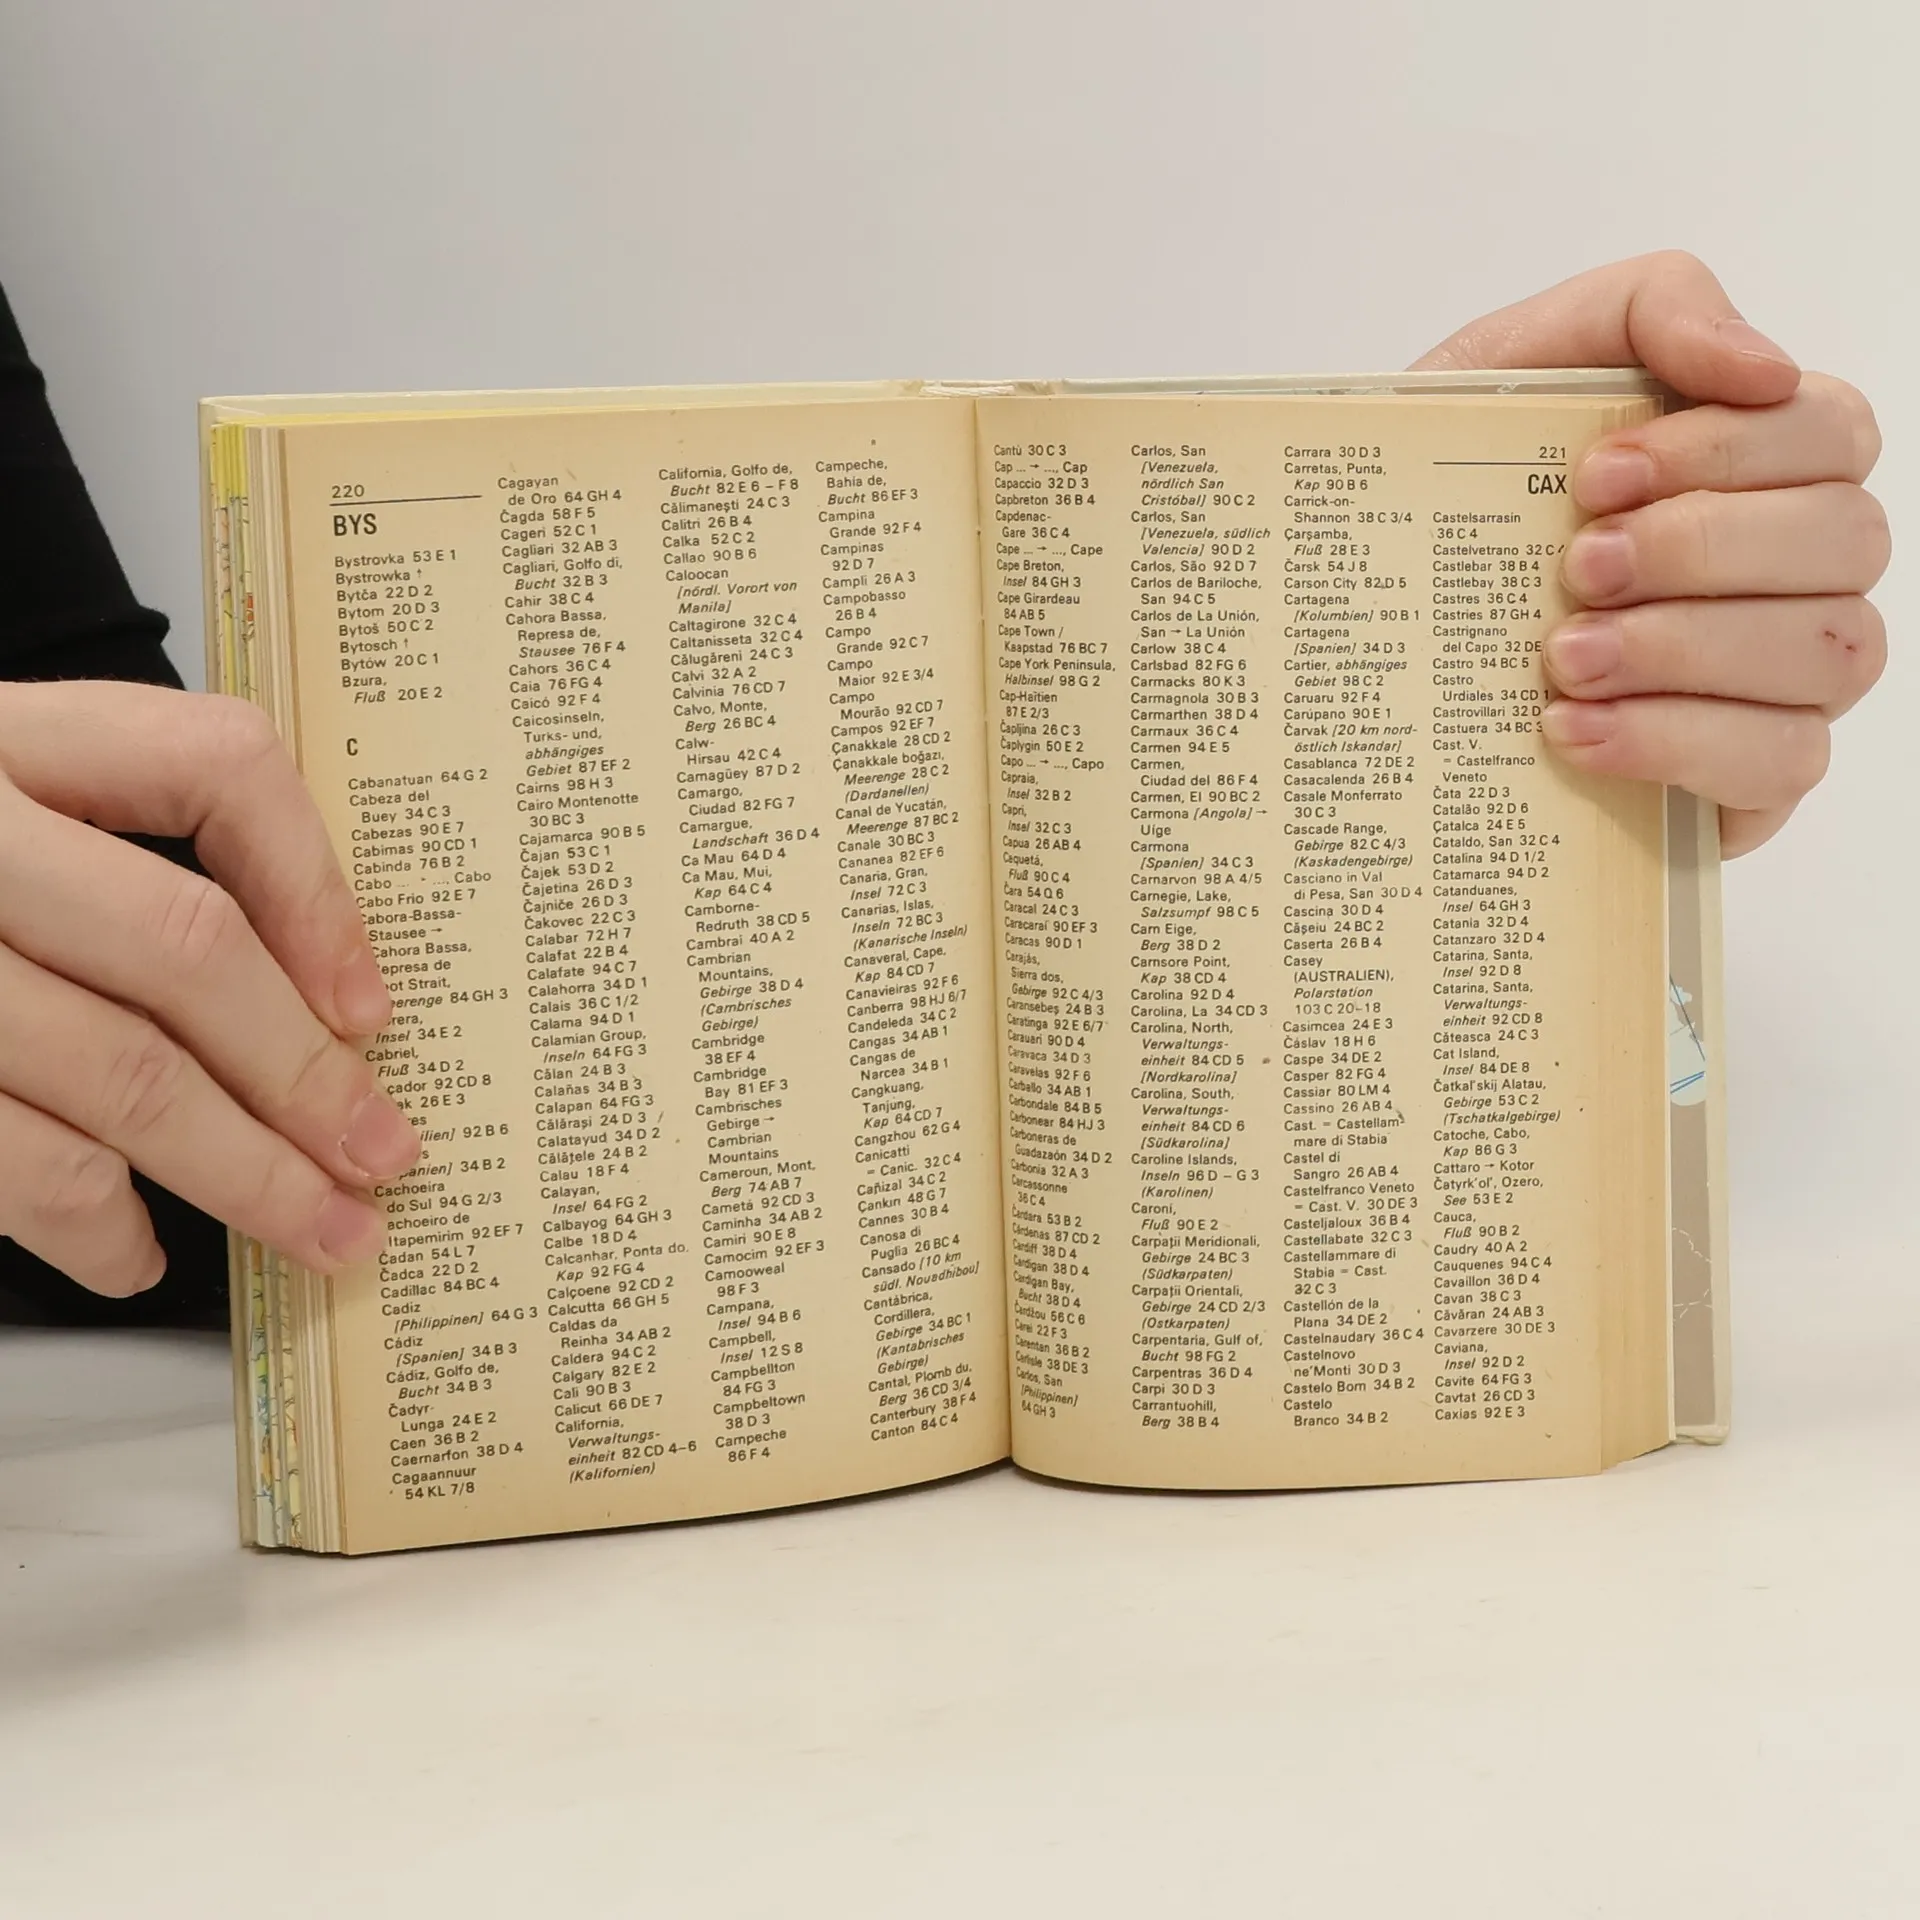 220
BYS
Bystrovka 53 E 1
Bystrowka ↑
Bytča 22 D 2
Bytom 20 D 3
Bytoš 50 C 2
Bytosch ↑
Bytów 20 C 1
Bzura,
Fluß 20 E 2
C
Cabanatuan 64 G 2
Cabeza del
Buey 34 C 3
Cabezas 90 E 7
Cabimas 90 CD 1
Cabinda 76 B 2
Cabo ... ..., Cabo
Cabo Frio 92 E 7
Cabora-Bassa-
Stausee →
Cahora Bassa,
Represa de
Strait,
84 GH 3
Insel 34 E 2
Cabriel,
Fluß 34 D 2
92 CD 8
26 E 3
92 B 6
34 B 2
Cachoeira
do Sul 94 G 2/3
achoeiro de
Itapemirim 92 EF 7
Čadan 54 L 7
Čadca 22 D 2
Cadillac 84 BC 4
Cadiz
[Philippinen] 64 G 3
Cádiz
[Spanien] 34 B 3
Cádiz, Golfo de,
Bucht 34 B 3
Čadyr-
Lunga 24 E 2
Caen 36 B 2
Caernarfon 38 D 4
Cagaannuur
54 KL 7/8
Cagayan
de Oro 64 GH 4
Čagda 58 F 5
Cageri 52 C 1
Cagliari 32 AB 3
Cagliari, Golfo di,
Bucht 32 B 3
Cahir 38 C 4
Cahora Bassa,
Represa de,
Stausee 76 F 4
Cahors 36 C 4
Caia 76 FG 4
Caicó 92 F 4
Caicosinseln,
Turks- und,
abhängiges
Gebiet 87 EF 2
Cairns 98 H 3
Cairo Montenotte
30 BC 3
Cajamarca 90 B 5
Čajan 53 C 1
Čajek 53 D 2
Čajetina 26 D 3
Čajniče 26 D 3
Čakovec 22 C 3
Calabar 72 H 7
Calafat 22 B 4
Calafate 94 C 7
Calahorra 34 D 1
Calais 36 C 1/2
Calama 94 D 1
Calamian Group,
Inseln 64 FG 3
Călan 24 B 3
Calañas 34 B 3
Calapan 64 FG 3
Călărași 24 D 3
Calatayud 34 D 2
Călățele 24 B 2
Calau 18 F 4
Calayan,
Insel 64 FG 2
Calbayog 64 GH 3
Calbe 18 D 4
Calcanhar, Ponta do,
Kap 92 FG 4
Calçoene 92 CD 2
Calcutta 66 GH 5
Caldas da
Reinha 34 AB 2
Caldera 94 C 2
Calgary 82 E 2
Cali 90 B 3
Calicut 66 DE 7
California,
Verwaltungs-
einheit 82 CD 4–6
(Kalifornien)
California, Golfo de,
Bucht 82 E 6 – F 8
Călimanești 24 C 3
Calitri 26 B 4
Calka 52 C 2
Callao 90 B 6
Caloocan
[nördl. Vorort von
Manila]
Caltagirone 32 C 4
Caltanisseta 32 C 4
Călugăreni 24 C 3
Calvi 32 A 2
Calvinia 76 CD 7
Calvo, Monte,
Berg 26 BC 4
Calw-
Hirsau 42 C 4
Camagüey 87 D 2
Camargo,
Ciudad 82 FG 7
Camargue,
Landschaft 36 D 4
Ca Mau 64 D 4
Ca Mau, Mui,
Kap 64 C 4
Camborne-
Redruth 38 CD 5
Cambrai 40 A 2
Cambrian
Mountains,
Gebirge 38 D 4
(Cambrisches
Gebirge)
Cambridge
38 EF 4
Cambridge
Bay 81 EF 3
Cambrisches
Gebirge →
Cambrian
Mountains
Cameroun, Mont,
Berg 74 AB 7
Cametá 92 CD 3
Caminha 34 AB 2
Camiri 90 E 8
Camocim 92 EF 3
Camooweal
98 F 3
Campana,
Insel 94 B 6
Campbell,
Insel 12 S 8
Campbellton
84 FG 3
Campbeltown
38 D 3
Campeche
86 F 4
Campeche,
Bahia de,
Bucht 86 EF 3
Campina
Grande 92 F 4
Campinas
92 D 7
Campli 26 A 3
Campobasso
26 B 4
Campo
Grande 92 C 7
Campo
Maior 92 E 3/4
Campo
Mourão 92 CD 7
Campos 92 EF 7
Çanakkale 28 CD 2
Çanakkale boğazı,
Meerenge 28 C 2
(Dardanellen)
Canal de Yucatán,
Meerenge 87 BC 2
Canale 30 BC 3
Cananea 82 EF 6
Canaria, Gran,
Insel 72 C 3
Canarias, Islas,
Inseln 72 BC 3
(Kanarische Inseln)
Canaveral, Cape,
Kap 84 CD 7
Canavieiras 92 F 6
Canberra 98 HJ 6/7
Candeleda 34 C 2
Cangas 34 AB 1
Cangas de
Narcea 34 B 1
Cangkuang,
Tanjung,
Kap 64 CD 7
Cangzhou 62 G 4
Canicatti
= Canic. 32 C 4
Cañizal 34 C 2
Çankırı 48 G 7
Cannes 30 B 4
Canosa di
Puglia 26 BC 4
Cansado [10 km
südl. Nouadhibou]
Cantábrica,
Cordillera,
Gebirge 34 BC 1
(Kantabrisches
Gebirge)
Cantal, Plomb du,
Berg 36 CD 3/4
Canterbury 38 F 4
Canton 84 C 4
Cantù 30 C 3
Cap ... → ..., Cap
Capaccio 32 D 3
Capbreton 36 B 4
Capdenac-
Gare 36 C 4
Cape ... → ..., Cape
Cape Breton,
Insel 84 GH 3
Cape Girardeau
84 AB 5
Cape Town /
Kaapstad 76 BC 7
Cape York Peninsula,
Halbinsel 98 G 2
Cap-Haïtien
87 E 2/3
Čapljina 26 C 3
Čaplygin 50 E 2
Capo ... → ..., Capo
Capraia,
Insel 32 B 2
Capri,
Insel 32 C 3
Capua 26 AB 4
Caquetá,
Fluß 90 C 4
Čara 54 Q 6
Caracal 24 C 3
Caracaraí 90 EF 3
Caracas 90 D 1
Carajás,
Sierra dos,
Gebirge 92 C 4/3
Caransebeș 24 B 3
Caratinga 92 E 6/7
Carauari 90 D 4
Caravaca 34 D 3
Caravelas 92 F 6
Carballo 34 AB 1
Carbondale 84 B 5
Carbonear 84 HJ 3
Carboneras de
Guadazaón 34 D 2
Carbonia 32 A 3
Carcassonne
36 C 4
Čardara 53 B 2
Cárdenas 87 CD 2
Cardiff 38 D 4
Cardigan 38 D 4
Cardigan Bay,
Bucht 38 D 4
Čardžou 56 C 6
Carei 22 F 3
Carentan 36 B 2
Carlisle 38 DE 3
Carlos, San
[Philippinen]
64 GH 3
Carlos, San
[Venezuela,
nördlich San
Cristóbal] 90 C 2
Carlos, San
[Venezuela, südlich
Valencia] 90 D 2
Carlos, São 92 D 7
Carlos de Bariloche,
San 94 C 5
Carlos de La Unión,
San → La Unión
Carlow 38 C 4
Carlsbad 82 FG 6
Carmacks 80 K 3
Carmagnola 30 B 3
Carmarthen 38 D 4
Carmaux 36 C 4
Carmen 94 E 5
Carmen,
Ciudad del 86 F 4
Carmen, El 90 BC 2
Carmona [Angola] →
Uíge
Carmona
[Spanien] 34 C 3
Carnarvon 98 A 4/5
Carnegie, Lake,
Salzsumpf 98 C 5
Carn Eige,
Berg 38 D 2
Carnsore Point,
Kap 38 CD 4
Carolina 92 D 4
Carolina, La 34 CD 3
Carolina, North,
Verwaltungs-
einheit 84 CD 5
[Nordkarolina]
Carolina, South,
Verwaltungs-
einheit 84 CD 6
[Südkarolina]
Caroline Islands,
Inseln 96 D – G 3
(Karolinen)
Caroní,
Fluß 90 E 2
Carpații Meridionali,
Gebirge 24 BC 3
(Südkarpaten)
Carpații Orientali,
Gebirge 24 CD 2/3
(Ostkarpaten)
Carpentaria, Gulf of,
Bucht 98 FG 2
Carpentras 36 D 4
Carpi 30 D 3
Carrantuohill,
Berg 38 B 4
Carrara 30 D 3
Carretas, Punta,
Kap 90 B 6
Carrick-on-
Shannon 38 C 3/4
Çarşamba,
Fluß 28 E 3
Čarsk 54 J 8
Carson City 82 D 5
Cartagena
[Kolumbien] 90 B 1
Cartagena
[Spanien] 34 D 3
Cartier, abhängiges
Gebiet 98 C 2
Caruaru 92 F 4
Carúpano 90 E 1
Čarvak [20 km nord-
östlich Iskandar]
Casablanca 72 DE 2
Casacalenda 26 B 4
Casale Monferrato
30 C 3
Cascade Range,
Gebirge 82 C 4/3
(Kaskadengebirge)
Casciano in Val
di Pesa, San 30 D 4
Cascina 30 D 4
Cășeiu 24 BC 2
Caserta 26 B 4
Casey
(AUSTRALIEN),
Polarstation
103 C 20–18
Casimcea 24 E 3
Čáslav 18 H 6
Caspe 34 DE 2
Casper 82 FG 4
Cassiar 80 LM 4
Cassino 26 AB 4
Cast. = Castellam-
mare di Stabia
Castel di
Sangro 26 AB 4
Castelfranco Veneto
= Cast. V. 30 DE 3
Casteljaloux 36 B 4
Castellabate 32 C 3
Castellammare di
Stabia = Cast.
32 C 3
Castellón de la
Plana 34 DE 2
Castelnaudary 36 C 4
Castelnovo
ne'Monti 30 D 3
Castelo Bom 34 B 2
Castelo
Branco 34 B 2
221
CAX
Castelsarrasin
36 C 4
Castelvetrano 32 C 4
Castlebar 38 B 4
Castlebay 38 C 3
Castres 36 C 4
Castries 87 GH 4
Castrignano
del Capo 32 DE
Castro 94 BC 5
Castro
Urdiales 34 CD 1
Castrovillari 32 D
Castuera 34 BC 3
Cast. V.
= Castelfranco
Veneto
Čata 22 D 3
Catalão 92 D 6
Çatalca 24 E 5
Cataldo, San 32 C 4
Catalina 94 D 1/2
Catamarca 94 D 2
Catanduanes,
Insel 64 GH 3
Catania 32 D 4
Catanzaro 32 D 4
Catarina, Santa,
Insel 92 D 8
Catarina, Santa,
Verwaltungs-
einheit 92 CD 8
Căteasca 24 C 3
Cat Island,
Insel 84 DE 8
Čatkal'skij Alatau,
Gebirge 53 C 2
(Tschatkalgebirge)
Catoche, Cabo,
Kap 86 G 3
Cattaro → Kotor
Čatyrk'ol', Ozero,
See 53 E 2
Cauca,
Fluß 90 B 2
Caudry 40 A 2
Cauquenes 94 C 4
Cavaillon 36 D 4
Cavan 38 C 3
Căvăran 24 AB 3
Cavarzere 30 DE 3
Caviana,
Insel 92 D 2
Cavite 64 FG 3
Cavtat 26 CD 3
Caxias 92 E 3